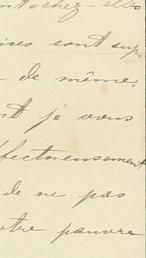 ntachez-elles
ices sont sup
de même,
nt je vous
ffectueusement
de ne pas
otre pauvre